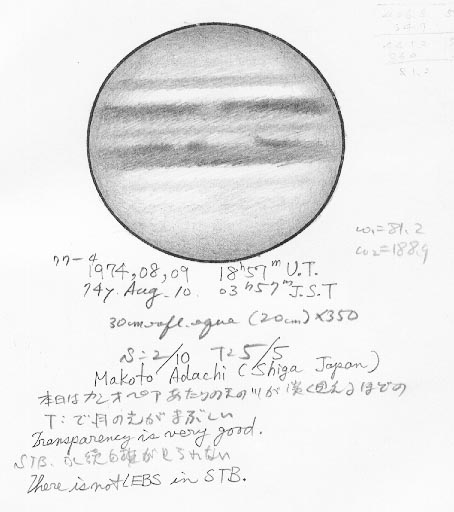 ω₁=81.2
ω₂=188.9
1974,08,09 18h57m U.T.
74y. Aug. 10. 03h57m J.S.T
30cm refl. eque (20cm) ×350
S=2/10 T=5/5
Makoto Adachi (Shiga Japan)
本日はカシオペアあたりの天の川が淡く見えるほどの
T:で月の光がまぶしい
Transparency is very good.
STB. 永続白斑が見られない
There is not LEBS in STB.
81.2